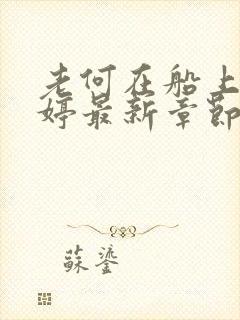 老何在船上
婷最新章節
蘇鎏